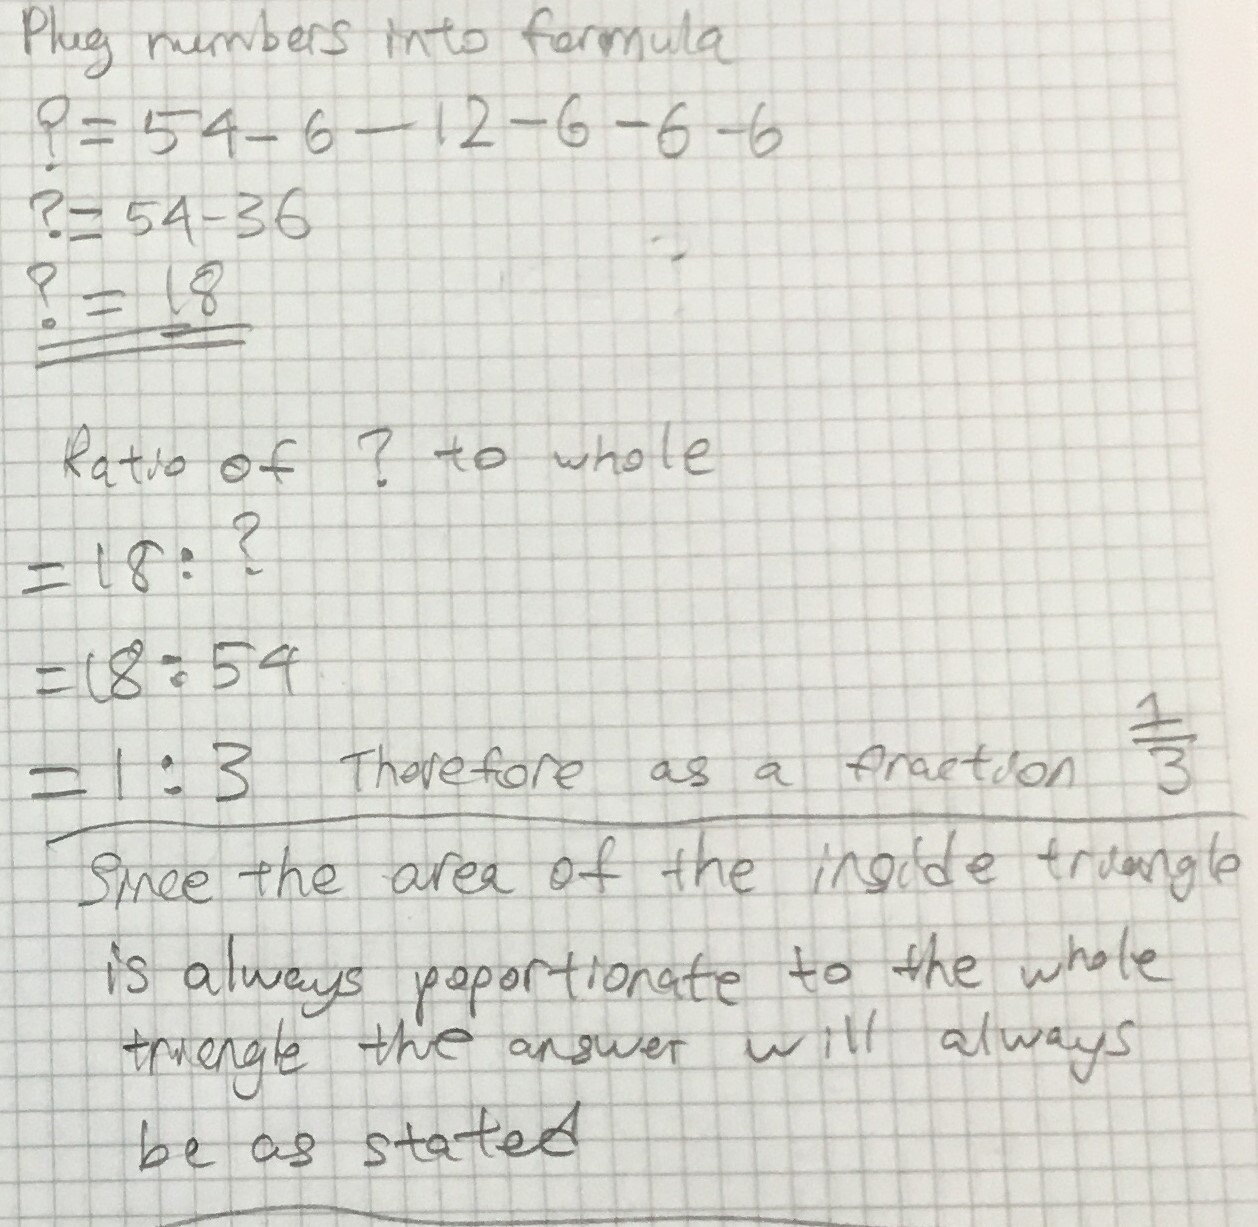 Plug numbers into formula
? = 54 - 6 - 12 - 6 - 6 - 6
? = 54 - 36
? = 18
Ratio of ? to whole
= 18 : ?
= 18 : 54
= 1 : 3 Therefore as a fraction 1/3
Since the area of the inside triangle
is always poportionate to the whole
triangle the answer will always
be as stated